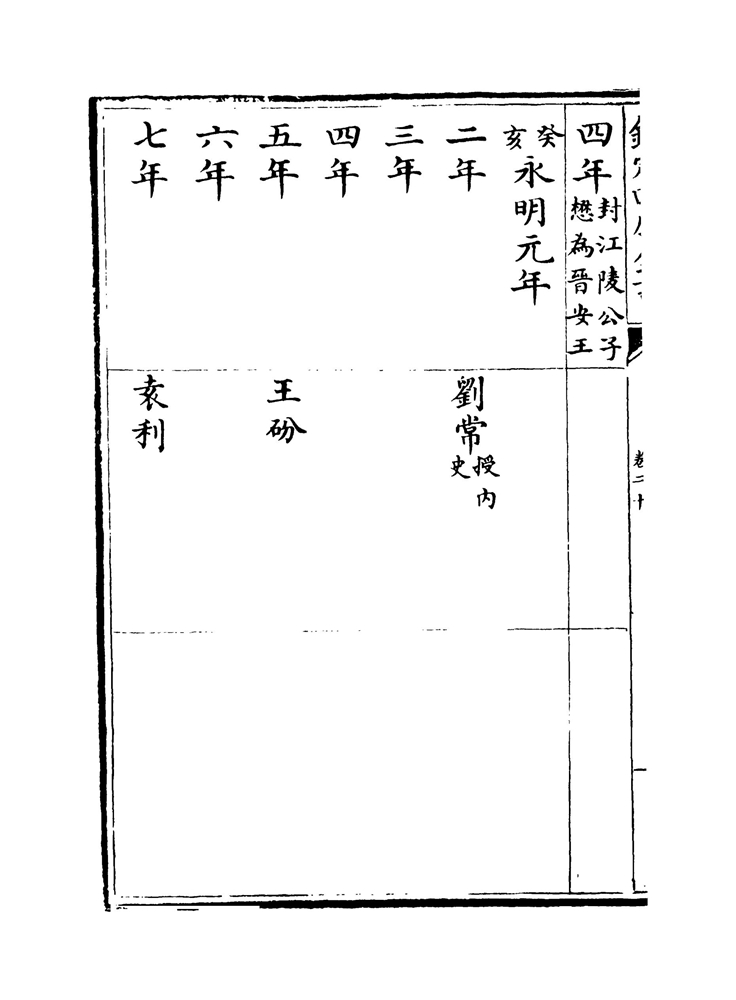 四年封江陵公子
懋為晉安王
癸亥永明元年
二年 劉常授內史
三年
四年
五年 王砏
六年
七年 袁利
卷二十